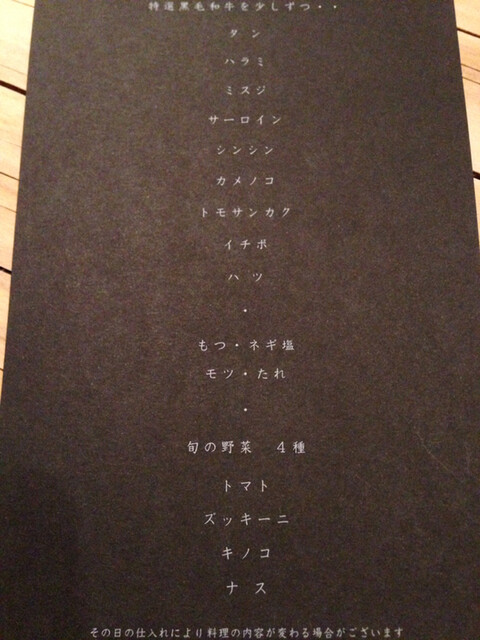 特選黒毛和牛を少しずつ・・
タン
ハラミ
ミスジ
サーロイン
シンシン
カメノコ
トモサンカク
イチボ
ハツ
・
もつ・ネギ塩
モツ・たれ
・
旬の野菜　４種
トマト
ズッキーニ
キノコ
ナス
その日の仕入れにより料理の内容が変わる場合がございます